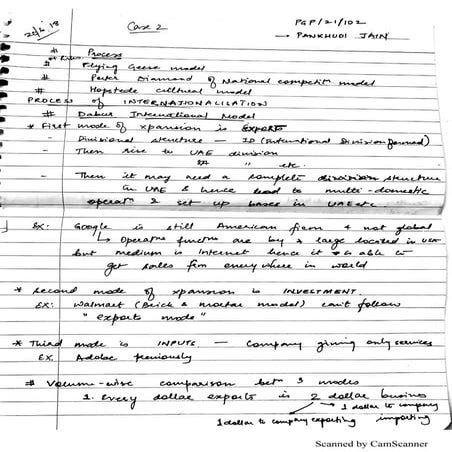 25/6/18
Case 2
PGP/21/102
→ PANKHUDI JAIN
# Process
# Flying Geese model
# Peter Diamond of National competit^n model
# Hofstede cultural model
PROCESS OF INTERNATIONALILATION
# Dabur International Model
* First mode of xpansion is EXPORTS
- Divisional structure — ID (International Division formed)
- Then rise to UAE division
" etc.
- Then it may need a complete division structure
in UAE & hence lead to multi-domestic
operat^n & set up bases in UAE etc
EX: Google is still American firm & not global
↳ Operat^n funct^ns are by & large located in USA
but medium is Internet hence it is able to
get sales from everywhere in world
* Second mode of xpansion is INVESTMENT
EX: Walmart (Brick & mortar model) can't follow
" exports mode"
* Third mode is INPUTS — Company giving only services
EX. Adobe previously
# Volume-wise comparison bet^n 3 modes
1. Every dollar exports is 2 dollar business
→ 1 dollar to company importing
1 dollar to company exporting
Scanned by CamScanner